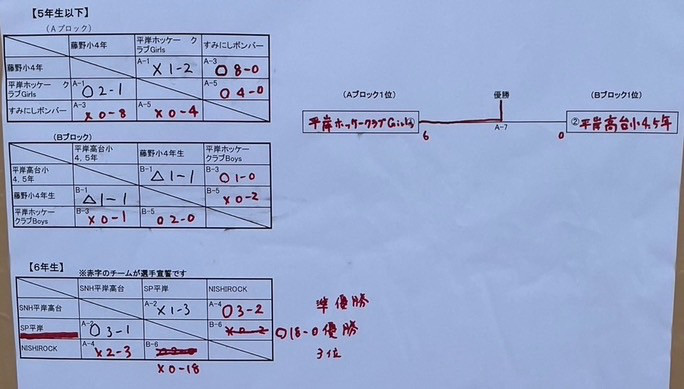 【5年生以下】
（Aブロック）
藤野小4年 平岸ホッケー クラブGirls すみにしボンバー
藤野小4年 A-1 X 1-2 A-3 O 8-0
平岸ホッケー クラブGirls A-1 O 2-1 A-5 O 4-0
すみにしボンバー A-3 X 0-8 A-5 X 0-4
（Bブロック）
平岸高台小4, 5年 藤野小4年生 平岸ホッケークラブBoys
平岸高台小4, 5年 B-1 △ 1-1 B-3 O 1-0
藤野小4年生 B-1 △ 1-1 B-5 X 0-2
平岸ホッケークラブBoys B-3 X 0-1 B-5 O 2-0
（Aブロック1位） 優勝 （Bブロック1位）
平岸ホッケークラブGirls ②平岸高台小4,5年
6 A-7 0
【6年生】 ※赤字のチームが選手宣誓です
SNH平岸高台 SP平岸 NISHIROCK
SNH平岸高台 A-2 X 1-3 A-4 O 3-2 準優勝
SP平岸 A-2 O 3-1 B-6 O 18-0 優勝
NISHIROCK A-4 X 2-3 B-6 3位
X 0-18